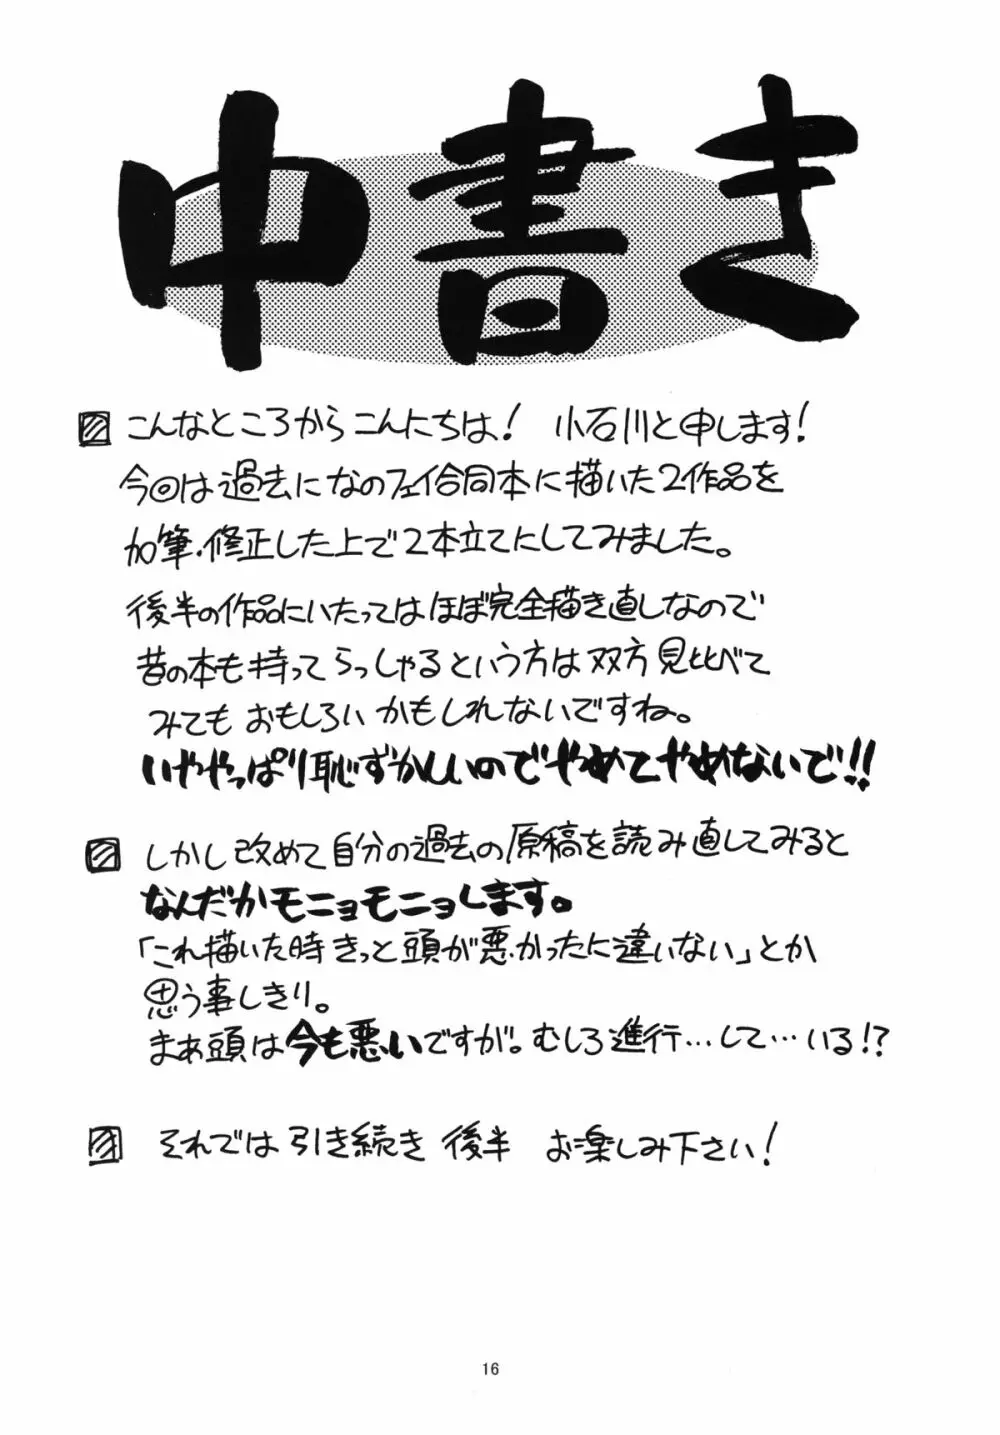 中書き
こんなところからこんにちは! 小石川と申します!
今回は過去になのフェイ合同本に描いた2作品を
加筆・修正した上で2本立てにしてみました。
後半の作品にいたってはほぼ完全描き直しなので
昔の本も持ってらっしゃるという方は双方見比べて
みてもおもしろいかもしれないですね。
いややっぱり恥ずかしいのでやめてやめないで!!
しかし改めて自分の過去の原稿を読み直してみると
なんだかモニョモニョします。
「これ描いた時きっと頭が悪かったに違いない」とか
思う事しきり。
まぁ頭は今も悪いですが。むしろ進行…して…いる!?
それでは引き続き後半 お楽しみ下さい!
16